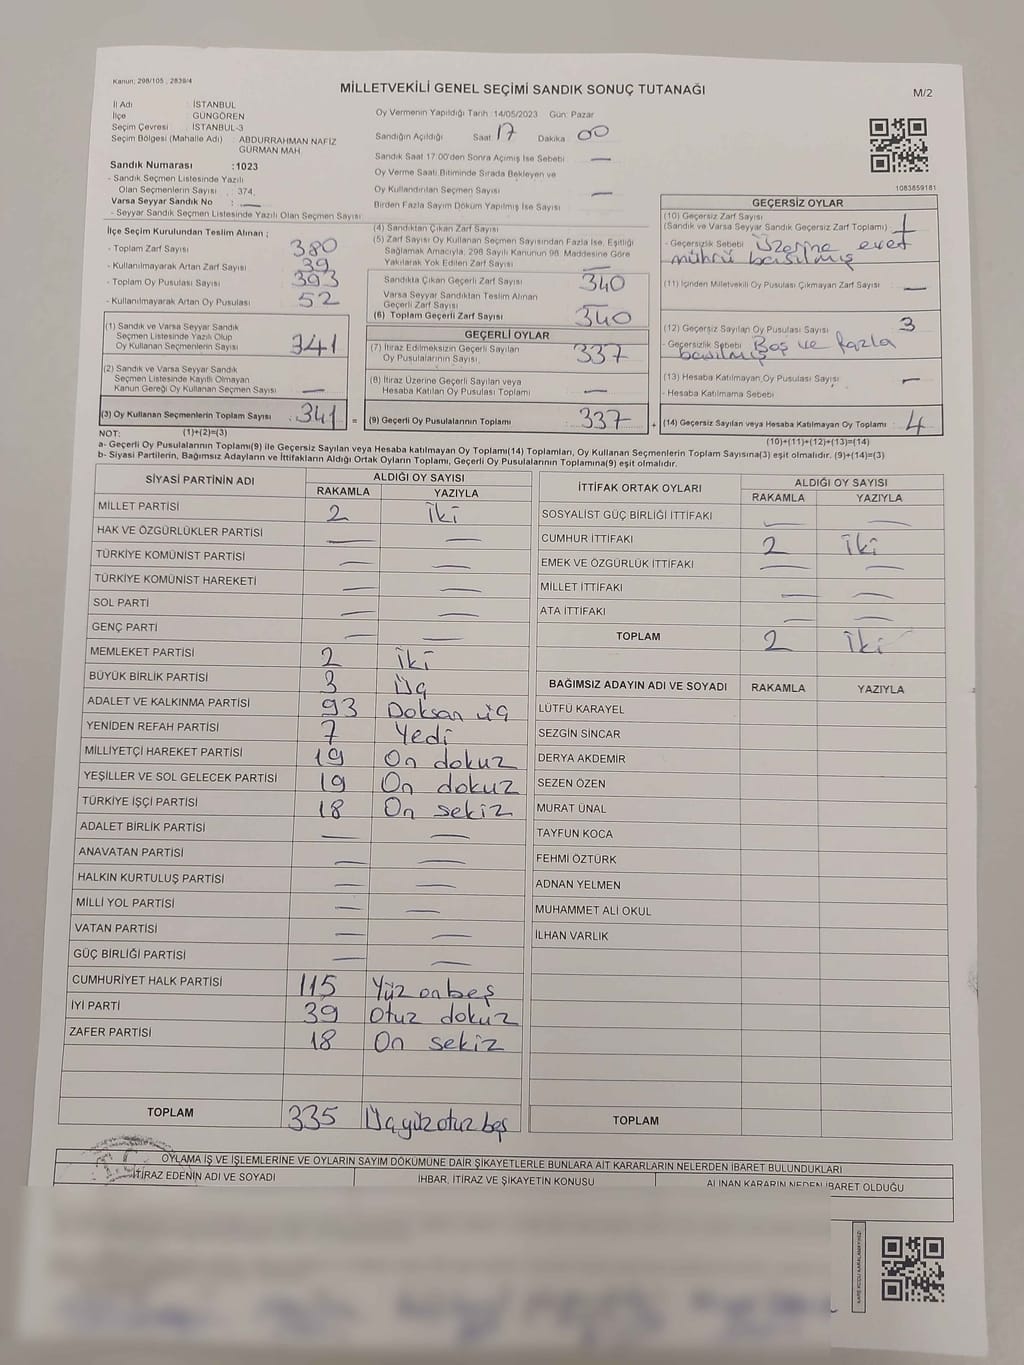 Kanun: 298/105 , 2839/4
MİLLETVEKİLİ GENEL SEÇİMİ SANDIK SONUÇ TUTANAĞI
M/2
İl Adı : İSTANBUL
İlçe : GÜNGÖREN
Seçim Çevresi : İSTANBUL-3
Seçim Bölgesi (Mahalle Adı) : ABDURRAHMAN NAFİZ
GÜRMAN MAH.
Sandık Numarası :1023
- Sandık Seçmen Listesinde Yazılı
Olan Seçmenlerin Sayısı : 374
Varsa Seyyar Sandık No : —
- Seyyar Sandık Seçmen Listesinde Yazılı Olan Seçmen Sayısı
Oy Vermenin Yapıldığı Tarih :14/05/2023 Gün: Pazar
Sandığın Açıldığı Saat 17 Dakika 00
Sandık Saat 17:00'den Sonra Açımış İse Sebebi —
Oy Verme Saati Bitiminde Sırada Bekleyen ve
Oy Kullandırılan Seçmen Sayısı —
Birden Fazla Sayım Döküm Yapılmış İse Sayısı
1083859181
İlçe Seçim Kurulundan Teslim Alınan ;
- Toplam Zarf Sayısı 380
- Kullanılmayarak Artan Zarf Sayısı 39
- Toplam Oy Pusulası Sayısı 393
- Kullanılmayarak Artan Oy Pusulası 52
(1) Sandık ve Varsa Seyyar Sandık
Seçmen Listesinde Yazılı Olup
Oy Kullanan Seçmenlerin Sayısı 341
(2) Sandık ve Varsa Seyyar Sandık
Seçmen Listesinde Kayıtlı Olmayan
Kanun Gereği Oy Kullanan Seçmen Sayısı —
(3) Oy Kullanan Seçmenlerin Toplam Sayısı 341 =
(4) Sandıktan Çıkan Zarf Sayısı
(5) Zarf Sayısı Oy Kullanan Seçmen Sayısından Fazla İse, Eşitliği
Sağlamak Amacıyla, 298 Sayılı Kanunun 98. Maddesine Göre
Yakılarak Yok Edilen Zarf Sayısı —
Sandıkta Çıkan Geçerli Zarf Sayısı 340
Varsa Seyyar Sandıktan Teslim Alınan
Geçerli Zarf Sayısı —
(6) Toplam Geçerli Zarf Sayısı 340
GEÇERLİ OYLAR
(7) İtiraz Edilmeksizin Geçerli Sayılan
Oy Pusulalarının Sayısı 337
(8) İtiraz Üzerine Geçerli Sayılan veya
Hesaba Katılan Oy Pusulaları Toplamı —
(9) Geçerli Oy Pusulalarının Toplamı 337 +
GEÇERSİZ OYLAR
(10) Geçersiz Zarf Sayısı
(Sandık ve Varsa Seyyar Sandık Geçersiz Zarf Toplamı) 1
- Geçersizlik Sebebi Üzerine evet
mührü basılmış
(11) İçinden Milletvekili Oy Pusulası Çıkmayan Zarf Sayısı —
(12) Geçersiz Sayılan Oy Pusulası Sayısı 3
- Geçersizlik Sebebi Boş ve fazla
basılmış
(13) Hesaba Katılmayan Oy Pusulası Sayısı —
- Hesaba Katılmama Sebebi
(14) Geçersiz Sayılan veya Hesaba Katılmayan Oy Toplamı 4
NOT: (1)+(2)=(3)
(10)+(11)+(12)+(13)=(14)
a- Geçerli Oy Pusulalarının Toplamı(9) ile Geçersiz Sayılan veya Hesaba katılmayan Oy Toplamı(14) Toplamları, Oy Kullanan Seçmenlerin Toplam Sayısına(3) eşit olmalıdır. (9)+(14)=(3)
b- Siyasi Partilerin, Bağımsız Adayların ve İttifakların Aldığı Ortak Oyların Toplamı, Geçerli Oy Pusulalarının Toplamına(9) eşit olmalıdır.
SİYASİ PARTİNİN ADI ALDIĞI OY SAYISI
RAKAMLA YAZIYLA
MİLLET PARTİSİ 2 iki
HAK VE ÖZGÜRLÜKLER PARTİSİ — —
TÜRKİYE KOMÜNİST PARTİSİ — —
TÜRKİYE KOMÜNİST HAREKETİ — —
SOL PARTİ — —
GENÇ PARTİ — —
MEMLEKET PARTİSİ 2 iki
BÜYÜK BİRLİK PARTİSİ 3 üç
ADALET VE KALKINMA PARTİSİ 93 Doksan üç
YENİDEN REFAH PARTİSİ 7 Yedi
MİLLİYETÇİ HAREKET PARTİSİ 19 On dokuz
YEŞİLLER VE SOL GELECEK PARTİSİ 19 On dokuz
TÜRKİYE İŞÇİ PARTİSİ 18 On sekiz
ADALET BİRLİK PARTİSİ — —
ANAVATAN PARTİSİ — —
HALKIN KURTULUŞ PARTİSİ — —
MİLLİ YOL PARTİSİ — —
VATAN PARTİSİ — —
GÜÇ BİRLİĞİ PARTİSİ — —
CUMHURİYET HALK PARTİSİ 115 Yüz on beş
İYİ PARTİ 39 Otuz dokuz
ZAFER PARTİSİ 18 On sekiz
TOPLAM 335 Üç yüz otuz beş
İTTİFAK ORTAK OYLARI ALDIĞI OY SAYISI
RAKAMLA YAZIYLA
SOSYALİST GÜÇ BİRLİĞİ İTTİFAKI — —
CUMHUR İTTİFAKI 2 iki
EMEK VE ÖZGÜRLÜK İTTİFAKI — —
MİLLET İTTİFAKI — —
ATA İTTİFAKI — —
TOPLAM 2 iki
BAĞIMSIZ ADAYIN ADI VE SOYADI RAKAMLA YAZIYLA
LÜTFÜ KARAYEL
SEZGİN SİNCAR
DERYA AKDEMİR
SEZEN ÖZEN
MURAT ÜNAL
TAYFUN KOCA
FEHMİ ÖZTÜRK
ADNAN YELMEN
MUHAMMET ALİ OKUL
İLHAN VARLIK
TOPLAM
OYLAMA İŞ VE İŞLEMLERİNE VE OYLARIN SAYIM DÖKÜMÜNE DAİR ŞİKAYETLERLE BUNLARA AİT KARARLARIN NELERDEN İBARET BULUNDUKLARI
İTİRAZ EDENİN ADI VE SOYADI İHBAR, İTİRAZ VE ŞİKAYETİN KONUSU ALINAN KARARIN NEDEN İBARET OLDUĞU
KARE KODU KARALAMAYINIZ!